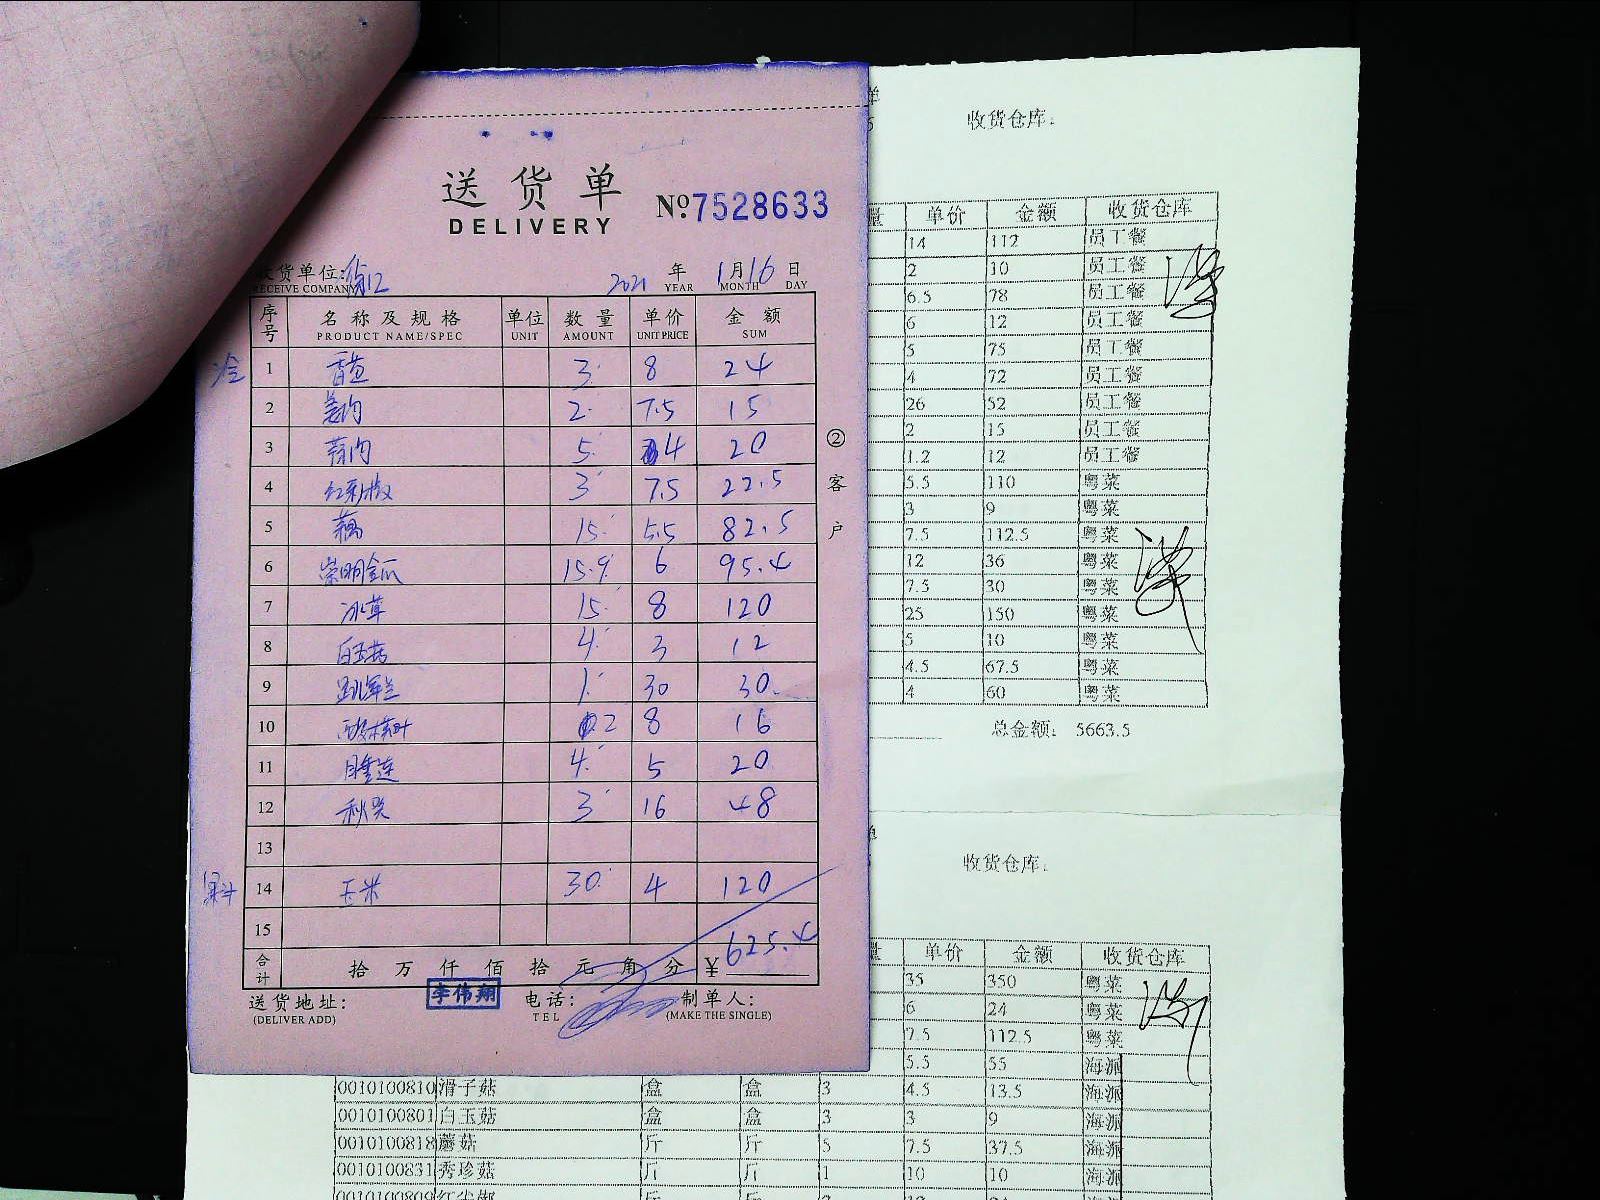 送货单
DELIVERY
№7528633
收货单位:徐汇 2021年1月16日
RECEIVE COMPANY YEAR MONTH DAY
序号 名称及规格 单位 数量 单价 金额
PRODUCT NAME/SPEC UNIT AMOUNT UNIT PRICE SUM
冷 1 香菜 3 8 24
2 姜肉 2 7.5 15
3 蒜肉 5 4 20
4 红彩椒 3 7.5 22.5
5 藕 15 5.5 82.5
6 崇明金瓜 15.9 6 95.4
7 冰草 15 8 120
8 白玉菇 4 3 12
9 30 1 30
10 2 8 16
11 睡莲 4 5 20
12 秋葵 3 16 48
13
14 玉米 30 4 120
15
合计 拾万仟佰拾元角分 ¥625.4
送货地址: 李伟翔 电话: 制单人:
(DELIVER ADD) TEL (MAKE THE SINGLE)
②客户
单
收货仓库:
量 单价 金额 收货仓库
14 112 员工餐
2 10 员工餐
6.5 78 员工餐
6 12 员工餐
5 75 员工餐
4 72 员工餐
26 52 员工餐
2 15 员工餐
1.2 12 员工餐
5.5 110 粤菜
3 9 粤菜
7.5 112.5 粤菜
12 36 粤菜
7.5 30 粤菜
25 150 粤菜
5 10 粤菜
4.5 67.5 粤菜
4 60 粤菜
总金额: 5663.5
单
收货仓库:
量 单价 金额 收货仓库
35 350 粤菜
6 24 粤菜
7.5 112.5 粤菜
5.5 55 海派
0010100810 滑子菇 盒 盒 3 4.5 13.5 海派
0010100801 白玉菇 盒 盒 3 3 9 海派
0010100818 蘑菇 斤 斤 5 7.5 37.5 海派
0010100831 秀珍菇 斤 斤 1 10 10 海派